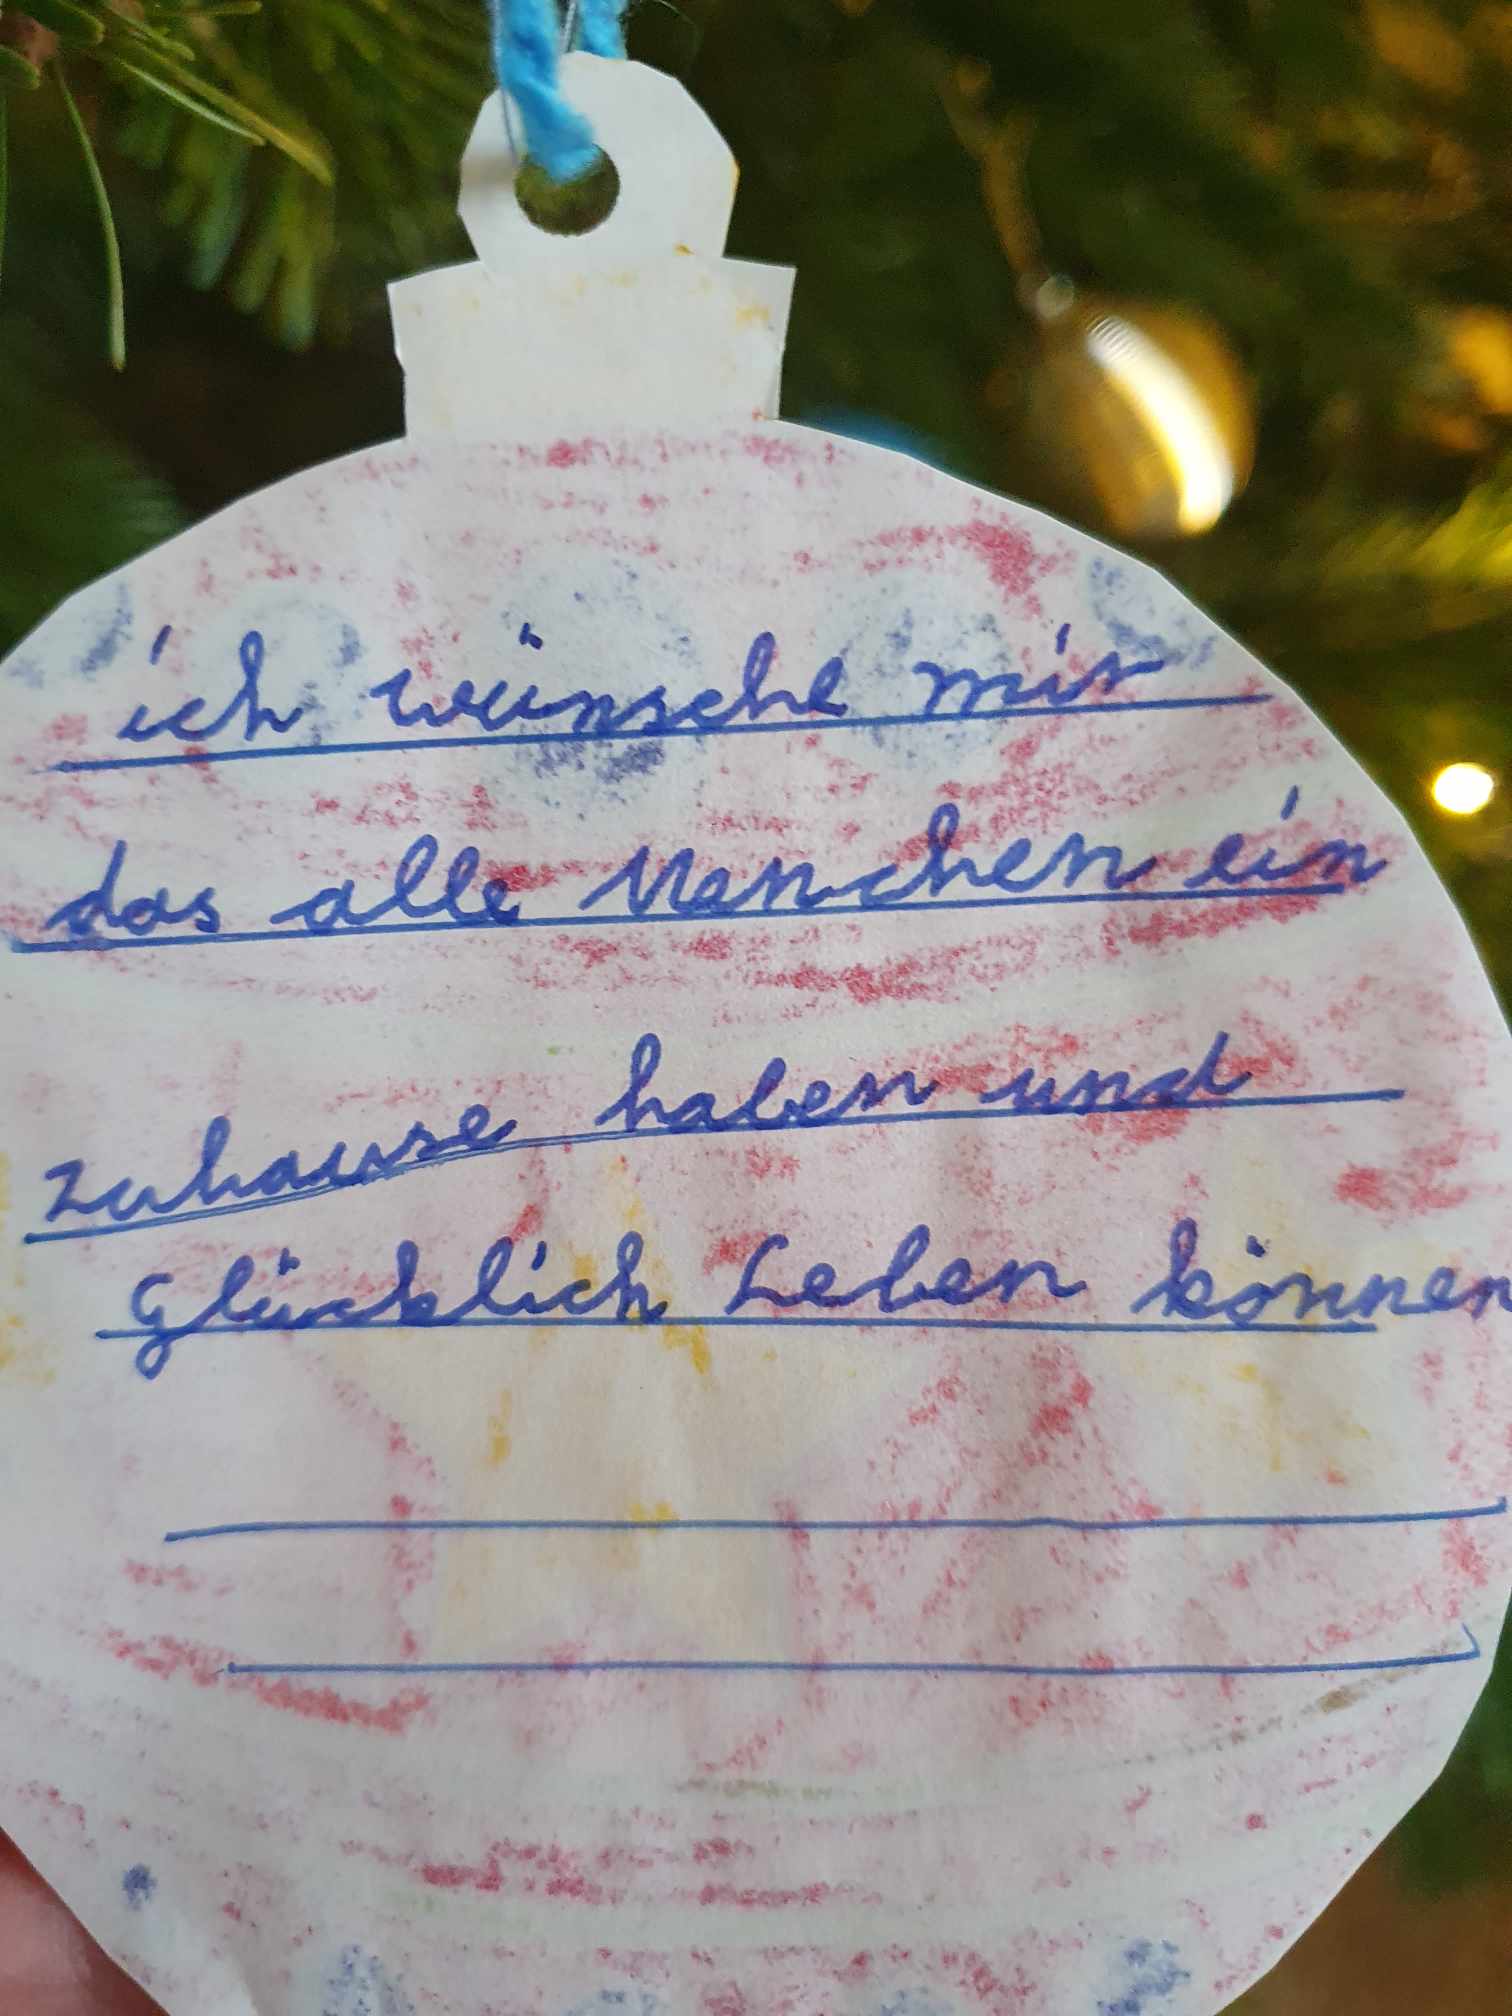 ich wünsche mir
das alle Menchen ein
zuhause haben und
Glücklich Leben können